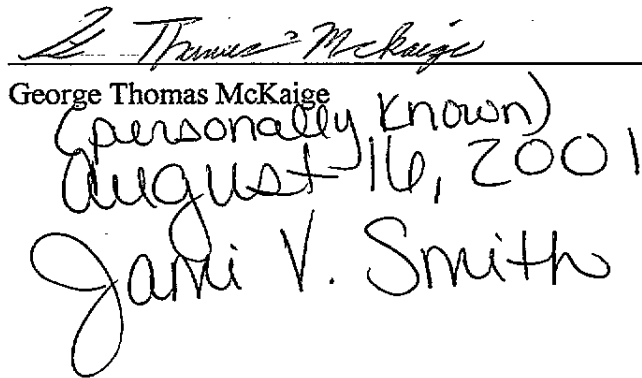 G. Thomas McKaige
George Thomas McKaige
(personally known)
August 16, 2001
Jami V. Smith